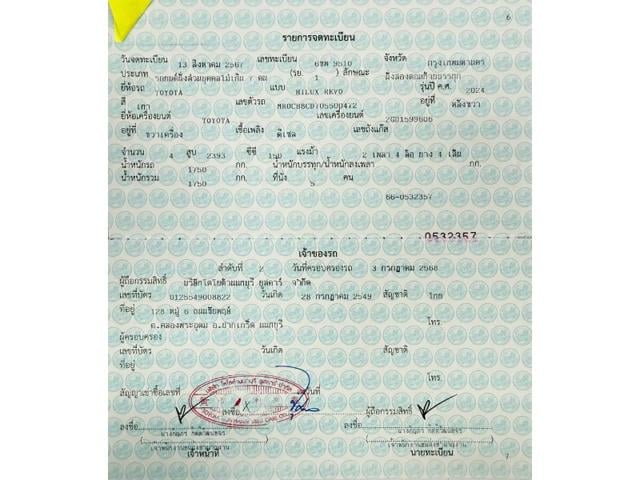 6
รายการจดทะเบียน
วันจดทะเบียน 13 สิงหาคม 2567 เลขทะเบียน 6ขพ 9510 จังหวัด กรุงเทพมหานคร
ประเภท รถยนต์นั่งส่วนบุคคลไม่เกิน 7 คน (รย. 1 ) ลักษณะ นั่งสองตอนท้ายบรรทุก
ยี่ห้อรถ TOYOTA แบบ HILUX REVO รุ่นปี ค.ศ. 2024
สี เทา เลขตัวรถ MR0CB8CD705500472 อยู่ที่
ยี่ห้อเครื่องยนต์ TOYOTA เลขเครื่องยนต์ 2GD1599606
อยู่ที่ ขวาเครื่อง เชื้อเพลิง ดีเซล เลขถังแก๊ส
จำนวน 4 สูบ 2393 ซีซี 150 แรงม้า 2 เพลา 4 ล้อ ยาง 4 เส้น
น้ำหนักรถ 1750 กก. น้ำหนักบรรทุก/น้ำหนักลงเพลา กก.
น้ำหนักรวม 1750 กก. ที่นั่ง 5 คน
66-0532357
0532357
เจ้าของรถ
ลำดับที่ 2 วันที่ครอบครองรถ 3 กรกฎาคม 2568
ผู้ถือกรรมสิทธิ์ บริษัทโตโยต้านนทบุรี ยูสคาร์ จำกัด
เลขที่บัตร 0125549008822 วันเกิด 28 กรกฎาคม 2549 สัญชาติ ไทย
ที่อยู่ 128 หมู่ 6 ถนนชัยพฤกษ์
ต.คลองพระอุดม อ.ปากเกร็ด นนทบุรี โทร.
ผู้ครอบครอง
เลขที่บัตร วันเกิด สัญชาติ
ที่อยู่
โทร.
สัญญาเช่าซื้อเลขที่ ลงวันที่
ลงชื่อ ผู้ถือกรรมสิทธิ์
ลงชื่อ ลงชื่อ
เจ้าหน้าที่ นายทะเบียน
7